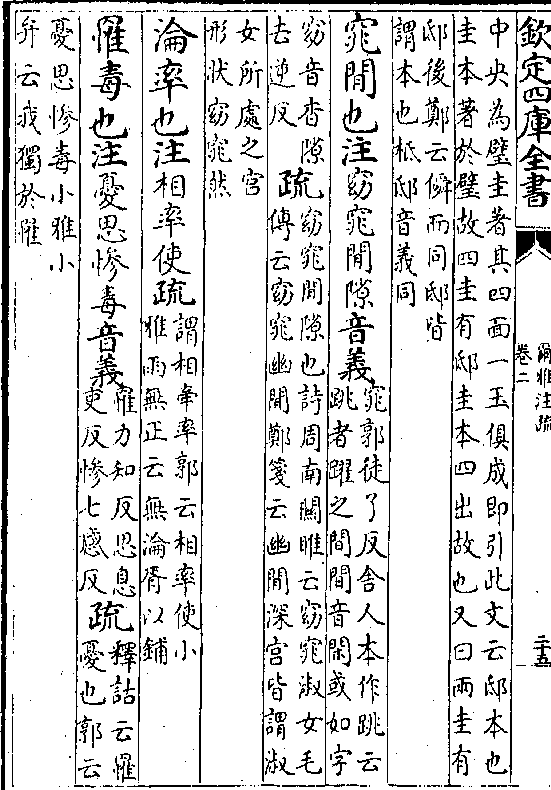 欽定四庫全書
爾雅注疏
卷二
二十五
中央為璧圭著其四面一玉俱成即引此文云邸本也
圭本著於璧故四圭有邸圭本四出故也又曰兩圭有
邸後鄭云僢而同邸皆
謂本也柢邸音義同
窕閒也注窈窕閒隙音義窕郭徒了反舍人本作跳云
跳者躍之間間音閑或如字
窈音杳隙
去逆反疏窈窕閒隙也詩周南關雎云窈窕淑女毛
傳云窈窕幽閒鄭箋云幽閒深宫皆謂淑
女所處之宫
形狀窈窕然
淪率也注相率使疏謂相牽率郭云相率使小
雅雨無正云無淪胥以鋪
罹毒也注憂思慘毒音義罹力知反思息
吏反慘七感反疏釋詁云罹
憂也郭云
憂思慘毒小雅小
弁云我獨於罹